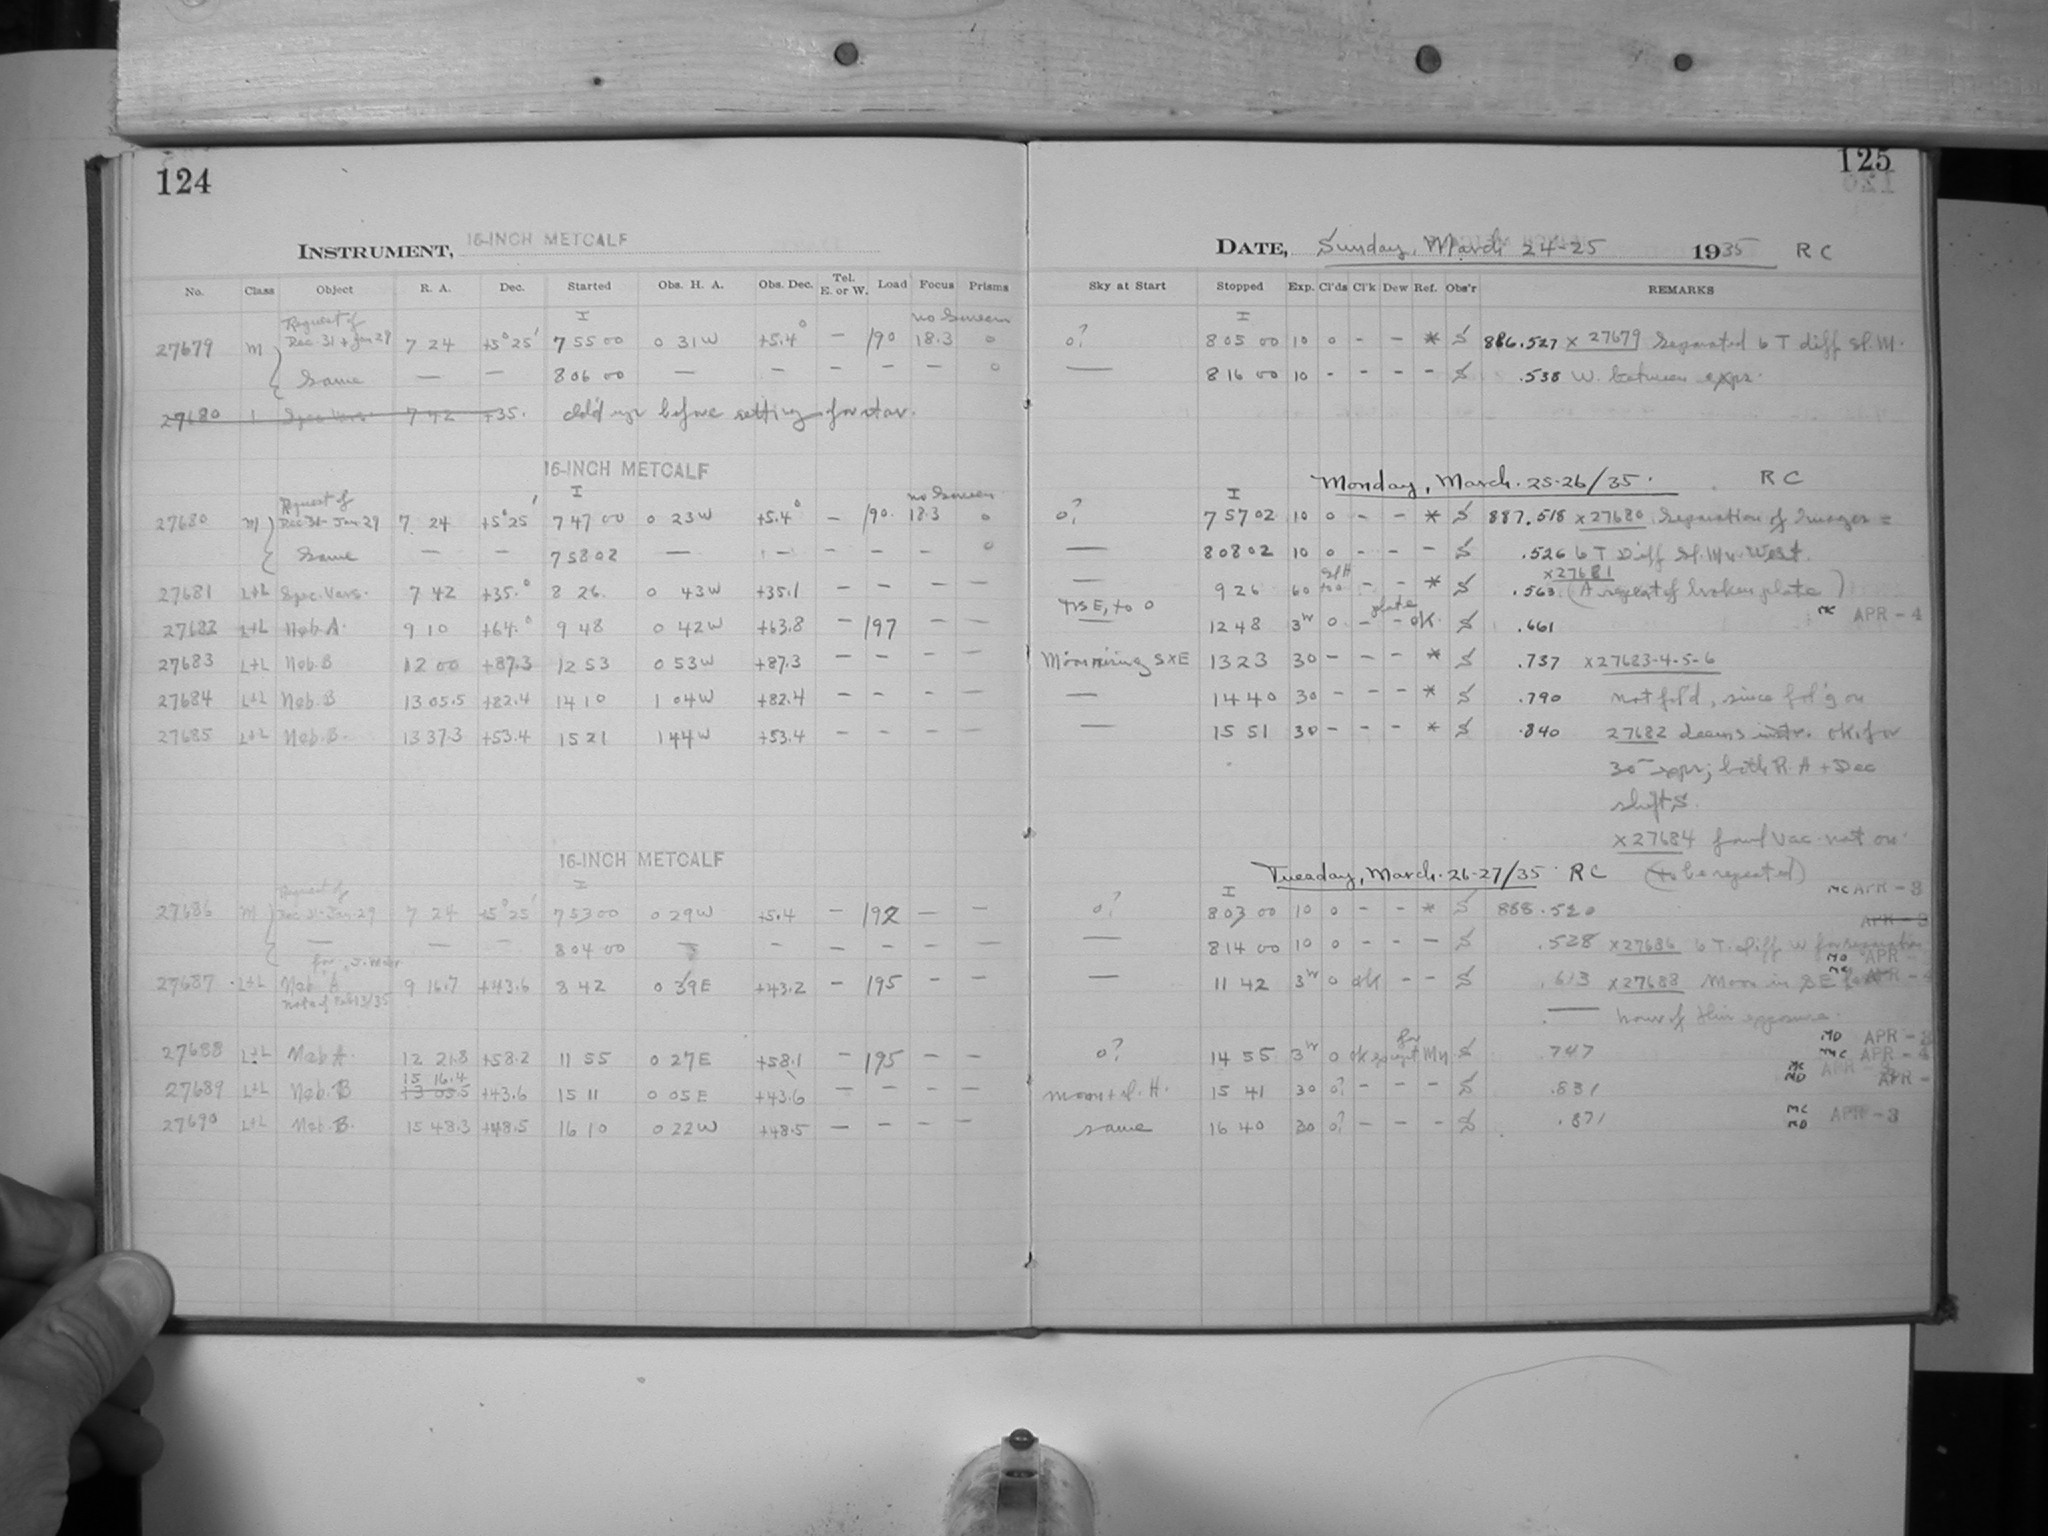 124
INSTRUMENT, 16-INCH METCALF
No. Class Object R. A. Dec. Started Obs. H. A. Obs. Dec. Tel. E. or W. Load Focus Prisms
I no Screen
Request of
27679 M Dec. 31 + Jan 29 7 24 +5° 25' 7 55 00 0 31 W +5.4° – 190 18.3 0
Same — — 8 06 00 — – – – – 0
27680 I Spec. Vars. 7 42 +35. cld'd up before setting for star.
16-INCH METCALF
I no Screen
Request of
27680 M Dec 31 - Jan. 29 7 24 +5° 25' 7 47 00 0 23 W +5.4° – 190. 18.3 0
Same — — 7 58 02 — – – – – 0
27681 L+L Spec. Vars. 7 42 +35.° 8 26. 0 43 W +35.1 – – – –
27682 L+L Neb. A. 9 10 +64.° 9 48 0 42 W +63.8 – 197 – –
27683 L+L Neb. B 12 00 +87.3 12 53 0 53 W +87.3 – – – –
27684 L+L Neb. B 13 05.5 +82.4 14 10 1 04 W +82.4 – – – –
27685 L+L Neb. B. 13 37.3 +53.4 15 21 1 44 W +53.4 – – – –
16-INCH METCALF
I
Request of
27686 M Dec 31 - Jan. 29 7 24 +5° 25' 7 53 00 0 29 W +5.4 – 192 – –
— — — 8 04 00 – – – – –
27687 L+L Neb. A 9 16.7 +43.6 8 42 0 39 E +43.2 – 195 – –
27688 L+L Neb A. 12 21.8 +58.2 11 55 0 27 E +58.1 – 195 – –
15 16.4
27689 L+L Neb. B 13 05.5 +43.6 15 11 0 05 E +43.6 – – – –
27690 L+L Neb. B. 15 48.3 +48.5 16 10 0 22 W +48.5 – – – –
125
DATE, Sunday, March 24-25 1935 R C
Sky at Start Stopped Exp. Cl'ds Cl'k Dew Ref. Obs'r REMARKS
I
0? 8 05 00 10 0 - - * S 886.527 x 27679 Separated 6 T diff Sl. M.
— 8 16 00 10 - - - - S .538 W. between exps.
Monday, March. 25-26/35. R C
I
0? 7 57 02 10 0 - - * S 887.518 x 27680 Separation of Images =
— 8 08 02 10 0 - - - S .526 6 T Diff Sl. M. West.
x 27681
— 9 26 60 - - * S .563 (A repeat of broken plate)
12 48 3 0 - plate - ok. S .661 MC APR - 4
Moon rising S x E 13 23 30 - - - * S .737 x 27683-4-5-6
— 14 40 30 - - - * S .790 not fol'd, since fol'g on
— 15 51 30 - - - * S .840 27682 deems instr. ok. for
30 exps; both R. A + Dec
shifts.
x 27684 found Vac. not on.
Tuesday, March. 26-27/35. R C (to be repeated)
MC APR - 3
I
0? 8 03 00 10 0 - - * S 888.520
APR - 3
— 8 14 00 10 0 - - - S .528 x 27686 6 T. diff W for separation
MD APR
— 11 42 3 0 ok - - S .613 x 27688 Moon in S E MC APR - 4
— hour of this exposure.
MD APR - 3
0? 14 55 3 0 ok S .747 MC APR - 4
MC APR - 3
moon + S. H. 15 41 30 0? - - - S .831 MD APR -
same 16 40 30 0? - - - S .871 MC MD APR - 3